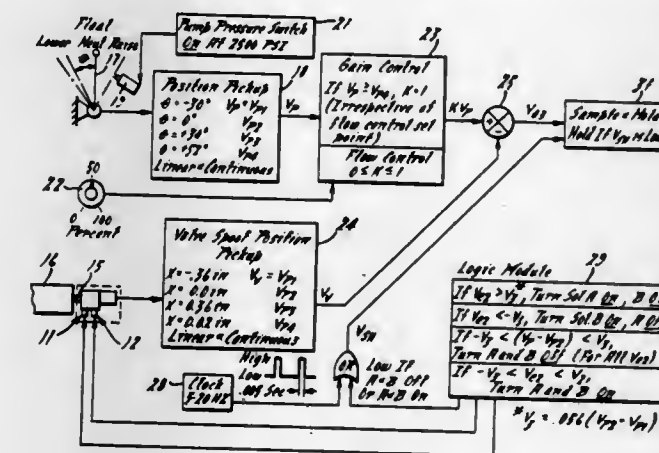 Float
Lower Neut Raise
17
19
Pump Pressure Switch
On At 2500 PSI
21
Position Pickup
θ = -30° Vp = Vp1
θ = 0° Vp2
θ = 30° Vp3
θ = 53° Vp4
Linear = Continuous
18
Vp
23
Gain Control
If Vp ≥ Vp4, K=1
(Irrespective of
flow control set
point)
Flow Control
0 ≤ K ≤ 1
KVp
25
+
-
31
Sample = Hold
Hold If VSH = Low
50
0 100
Percent
22
24
Valve Spool Position
Pickup
X = -.36 in Vv = Vp1
X = 0.0 in Vp2
X = 0.36 in Vp3
X = 0.62 in Vp4
Linear = Continuous
Vv
16
15
11
12
28
Clock
5-20 HZ
High
Low
.005 Sec
OR
VSH
Low If
A=B Off
Or A=B On
29
Logic Module
Turn Sol A On, B
Turn Sol B On, A
Turn A and B Off (For All
Turn A and B
On
* V3 = .056 (Vp2 - Vp1)